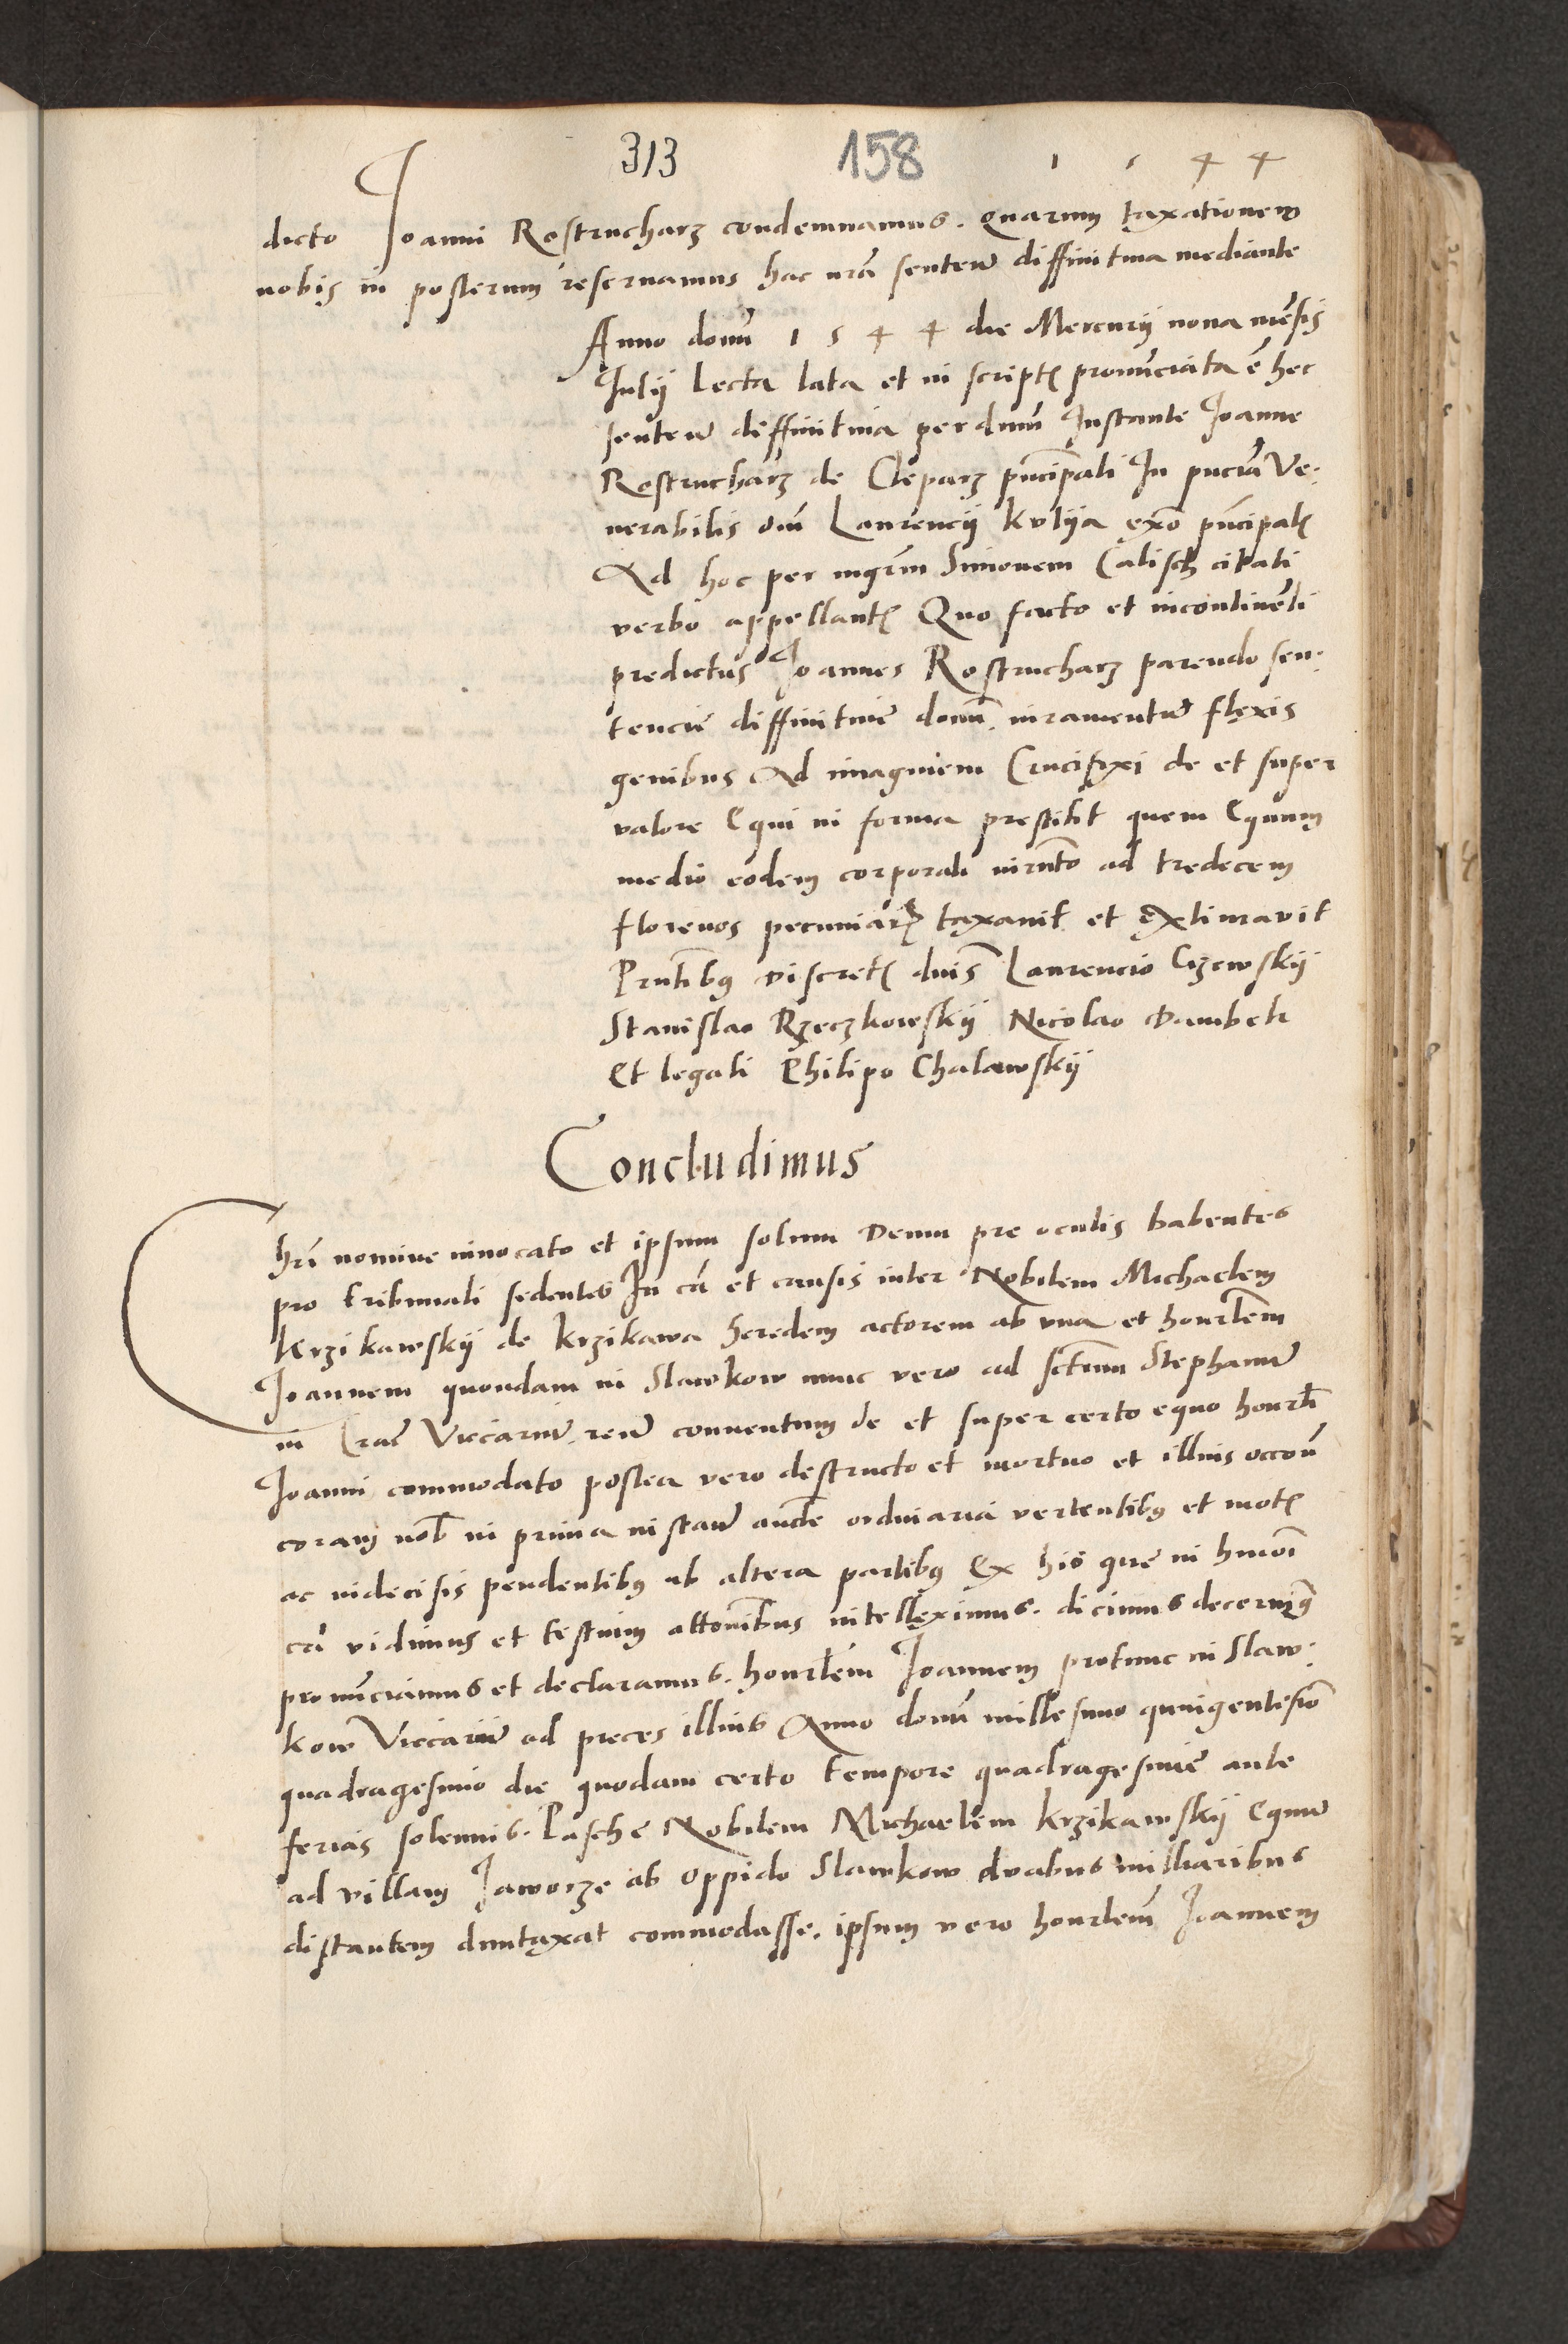 313 158 1 5 4 4
dicto Joanni Rostrucharz condemnamus. quarum taxationem
nobis in posterum reservamus hac nrã sentenciã diffinitiva mediante
Anno domi 1 5 4 4 die Mercurij nona mẽsis
Julij Lecta lata et in scriptis pronũcciata ẽ hec
sentenciã diffinitiva per dnum Instante Joanne
Rostrucharz de Cleparz pncipali In pncia Ve:
nerabilis dni Laurencij kulija exo pncipalis
Ad hoc per mgrm Simonem Calisch citati
verbo appellantis Quo facto et incontinẽti
predictus Joannes Rostrucharz parendo sen:
tencie diffinitive domi iuramentũ flexis
genibus Ad imaginem Crucifixi de et super
valore Equi in forma prestitit quem Equum
medio eodem corporali iurnto ad tredecem
florenos pecuniarum taxavit et Extimavit
Prntibus discretis dnis Laurencio Czewskij
Stanislao Rzeczkowskij Nicolao Dambek
Et legali Philipo Chalawskij
Concludimus
Chri nomine invocato et ipsum solum Deum pre oculis habentes
pro tribunali sedentes In cã et causis inter Nobilem Michaelem
Krzikawskij de Krzikawa heredem actorem ab una et honrblem
Joannem quondam in Slawkow nunc vero ad sctum Stephanũ
in Crac Viccariũ reũ conventum de et super certo equo honrbli
Joanni commodato postea vero destructo et mortuo et illius occone
coram nobis in prima instancia audie ordinaria vertentibus et motis
ac indecisis pendentibus ab altera partibus Ex his que in hmoi
cã vidimus et testium attonibus intelleximus. dicimus decernimus
pronũcciamus et declaramus. honrblem Joannem protunc in Slaw:
kow Viccariũ ad preces illius Anno domi millesimo quingentesimo
quadragesimo die quodam certo tempore quadragesime ante
ferias solennis. Pasche Nobilem Michaelem Krzikawskij Equũ
ad villam Jaworze ab oppido Slawkow duabus milliaribus
distantem duntaxat commodasse. ipsum vero honrblem Joannem